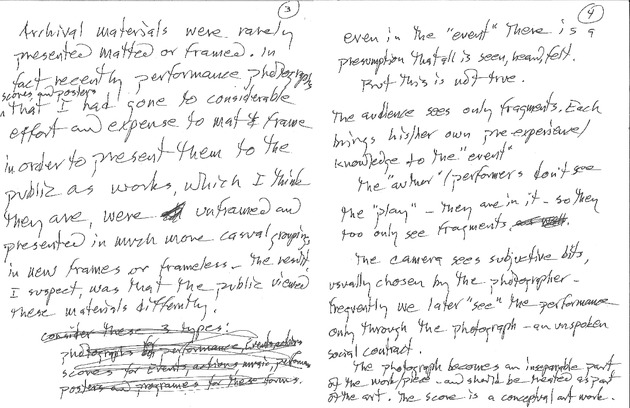 3
Archival materials were rarely
presented matted or framed. In
fact recently performance photographs
scores and posters
that I had gone to considerable
effort and expense to mat & frame
in order to present them to the
public as works, which I think
they are, were unframed and
presented in much more casual groupings
in new frames or frameless - the result
I suspect, was that the public viewed
these materials differently.
consider these 3 types:
photographs of performance, Events, actions
scores for Events, actions music, performance
posters and programes for these forms.
4
even in the "event" there is a
presumption that all is seen, heard, felt.
But this is not true.
The audience sees only fragments. Each
brings his/her own pre-experience/
knowledge to the "event"
The "author"/performers don't see
the "play" - they are in it - so they
too only see fragments
The camera sees subjective bits,
usually chosen by the photographer -
frequently we later "see" the performance
only through the photograph - an unspoken
social contract.
The photograph becomes an inseparable part
of the work/piece - and should be treated as part
of the art. The score is a conceptual art work.